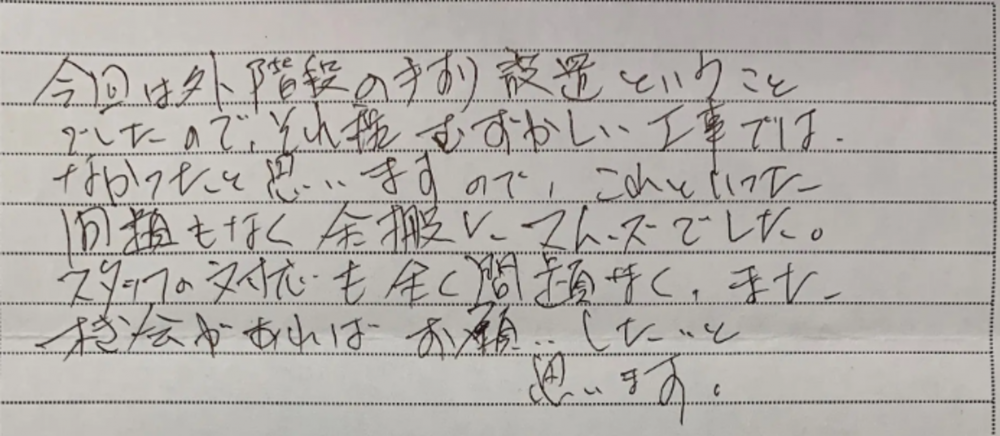 今回は外階段の手すり設置ということ
でしたので、それ程むずかしい工事では
なかったと思いますので、これといった
問題もなく全搬にスムーズでした。
スタッフの対応も全く問題なく、また
機会があればお願いしたいと
思います。